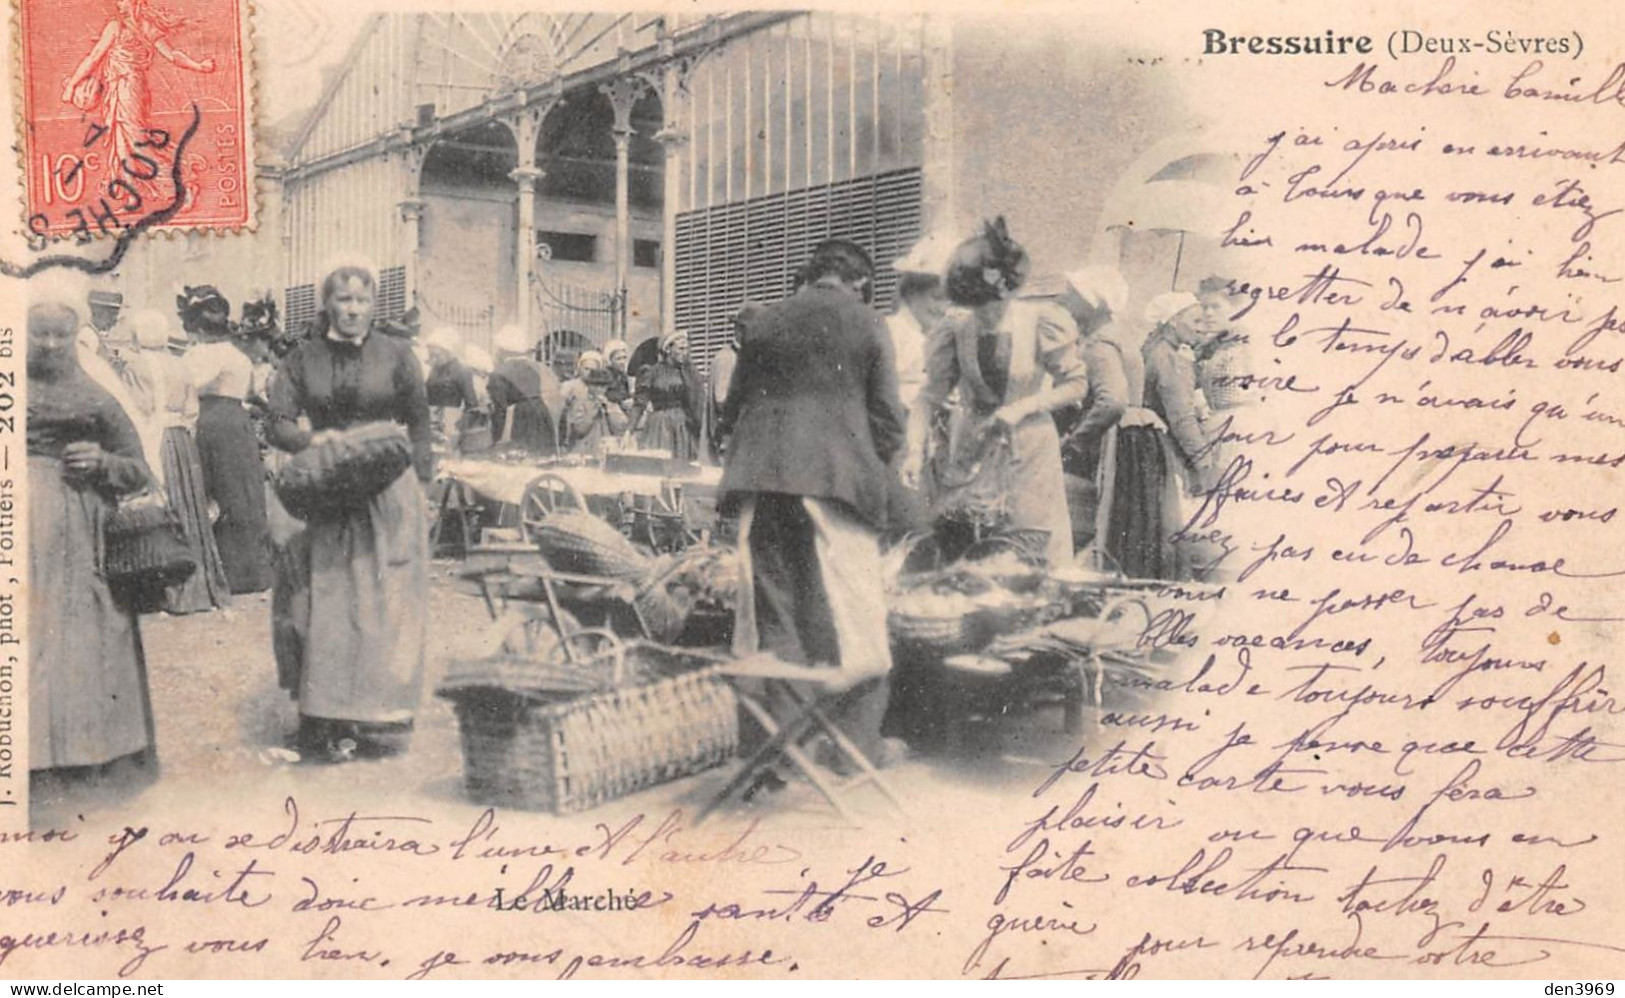 Bressuire (Deux-Sèvres)
Ma chère Camille
j'ai apris en arrivant
à Tours que vous étiez
bien malade j'ai bien
regretter de n'avoir pas
eu le temps d'aller vous
voire je n'avais qu'un
jour pour preparer mes
affaires et repartir vous
avez pas eu de chance
vous ne passer pas de
belles vacances, toujours
malade toujours souffrir
aussi je pense que cette
petite carte vous fera
plaisir ou que vous en
faite collection tachez d'être
guérie pour reprendre votre
moi y on se distraira l'une et l'autre, je
vous souhaite donc meilleure santé et
guerissez vous bien. je vous embrasse.
Le Marché
J. Robuchon, phot, Poitiers — 202 bis
10c
POSTES
ROCHE-S
den3969